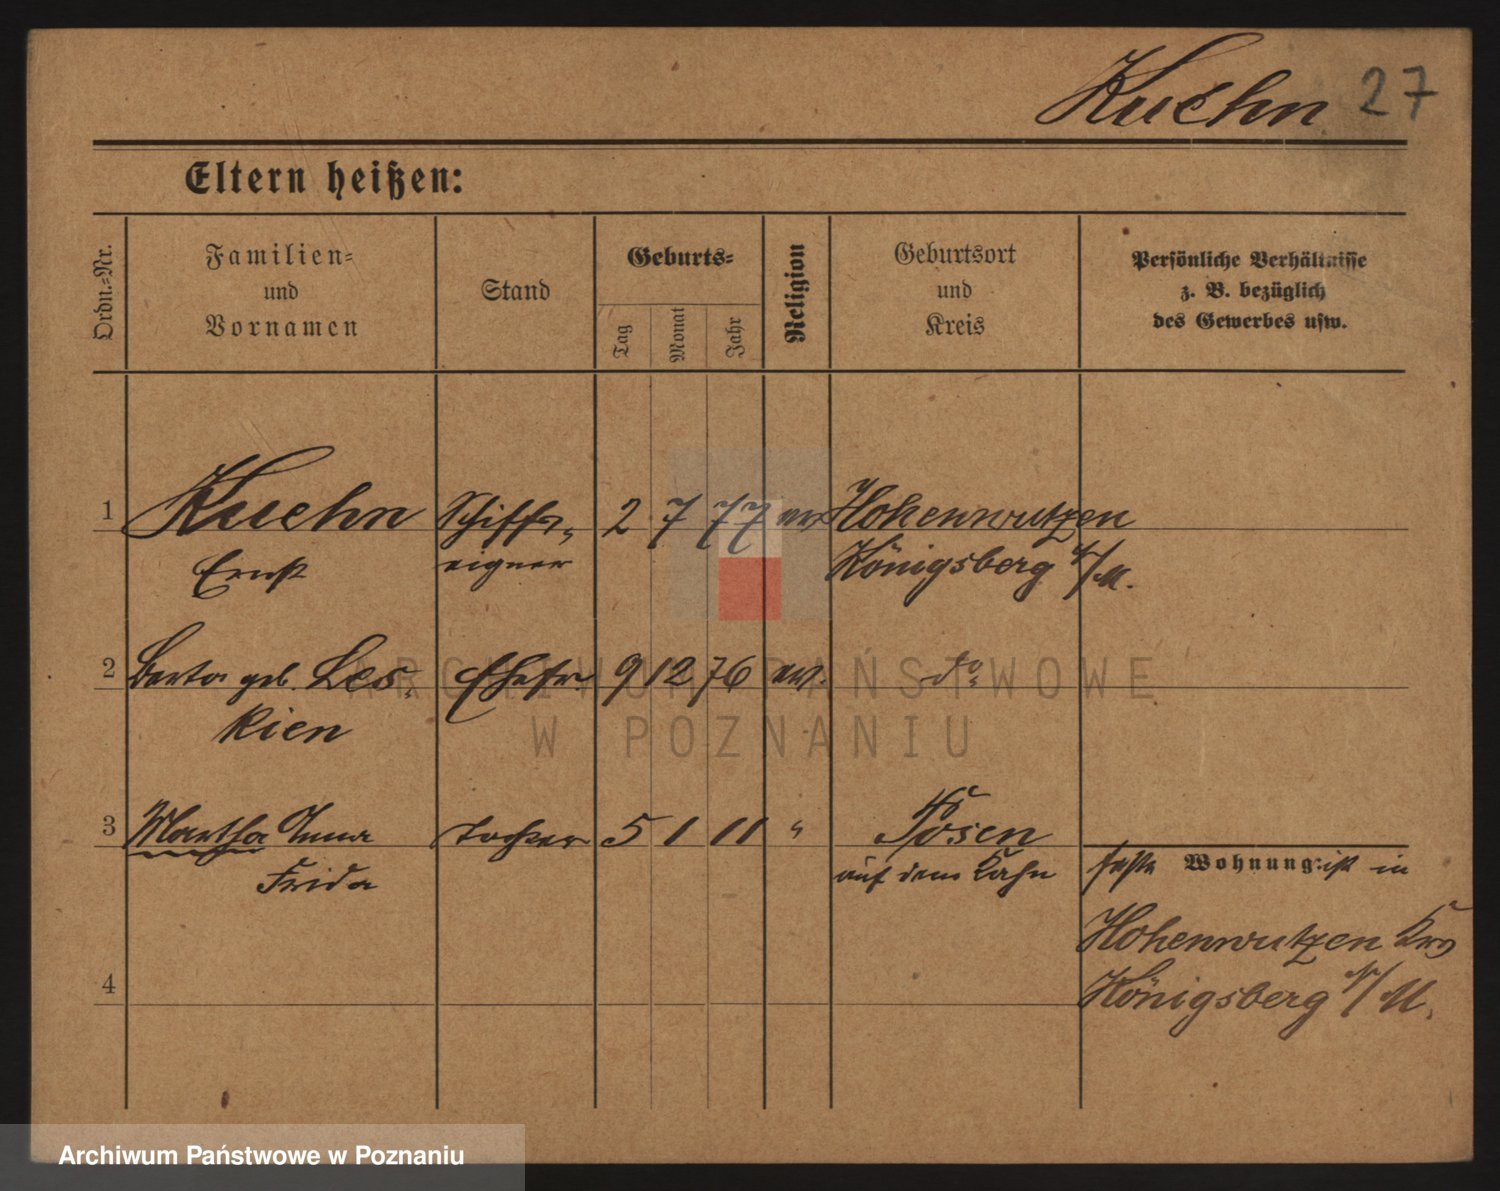 Kuehn 27
Eltern heißen:
Ordn.-Nr.
Familien-
und
Vornamen
Stand
Geburts-
Tag
Monat
Jahr
Religion
Geburtsort
und
Kreis
Persönliche Verhältnisse
z. B. bezüglich
des Gewerbes usw.
1 Kuehn Schiffs- 2 7 77 ev Hohenwutzen
Ernst eigner Königsberg N/M.
2 Berta geb. Les- Ehefr. 9 12 76 ev. do
kien
3 Martha Anna Tochter 5 1 11 " Posen
Frida auf dem Kahn
feste Wohnung: ist in
Hohenwutzen Krs
4 Königsberg N/M.
ARCHIWUM PAŃSTWOWE
W POZNANIU
Archiwum Państwowe w Poznaniu